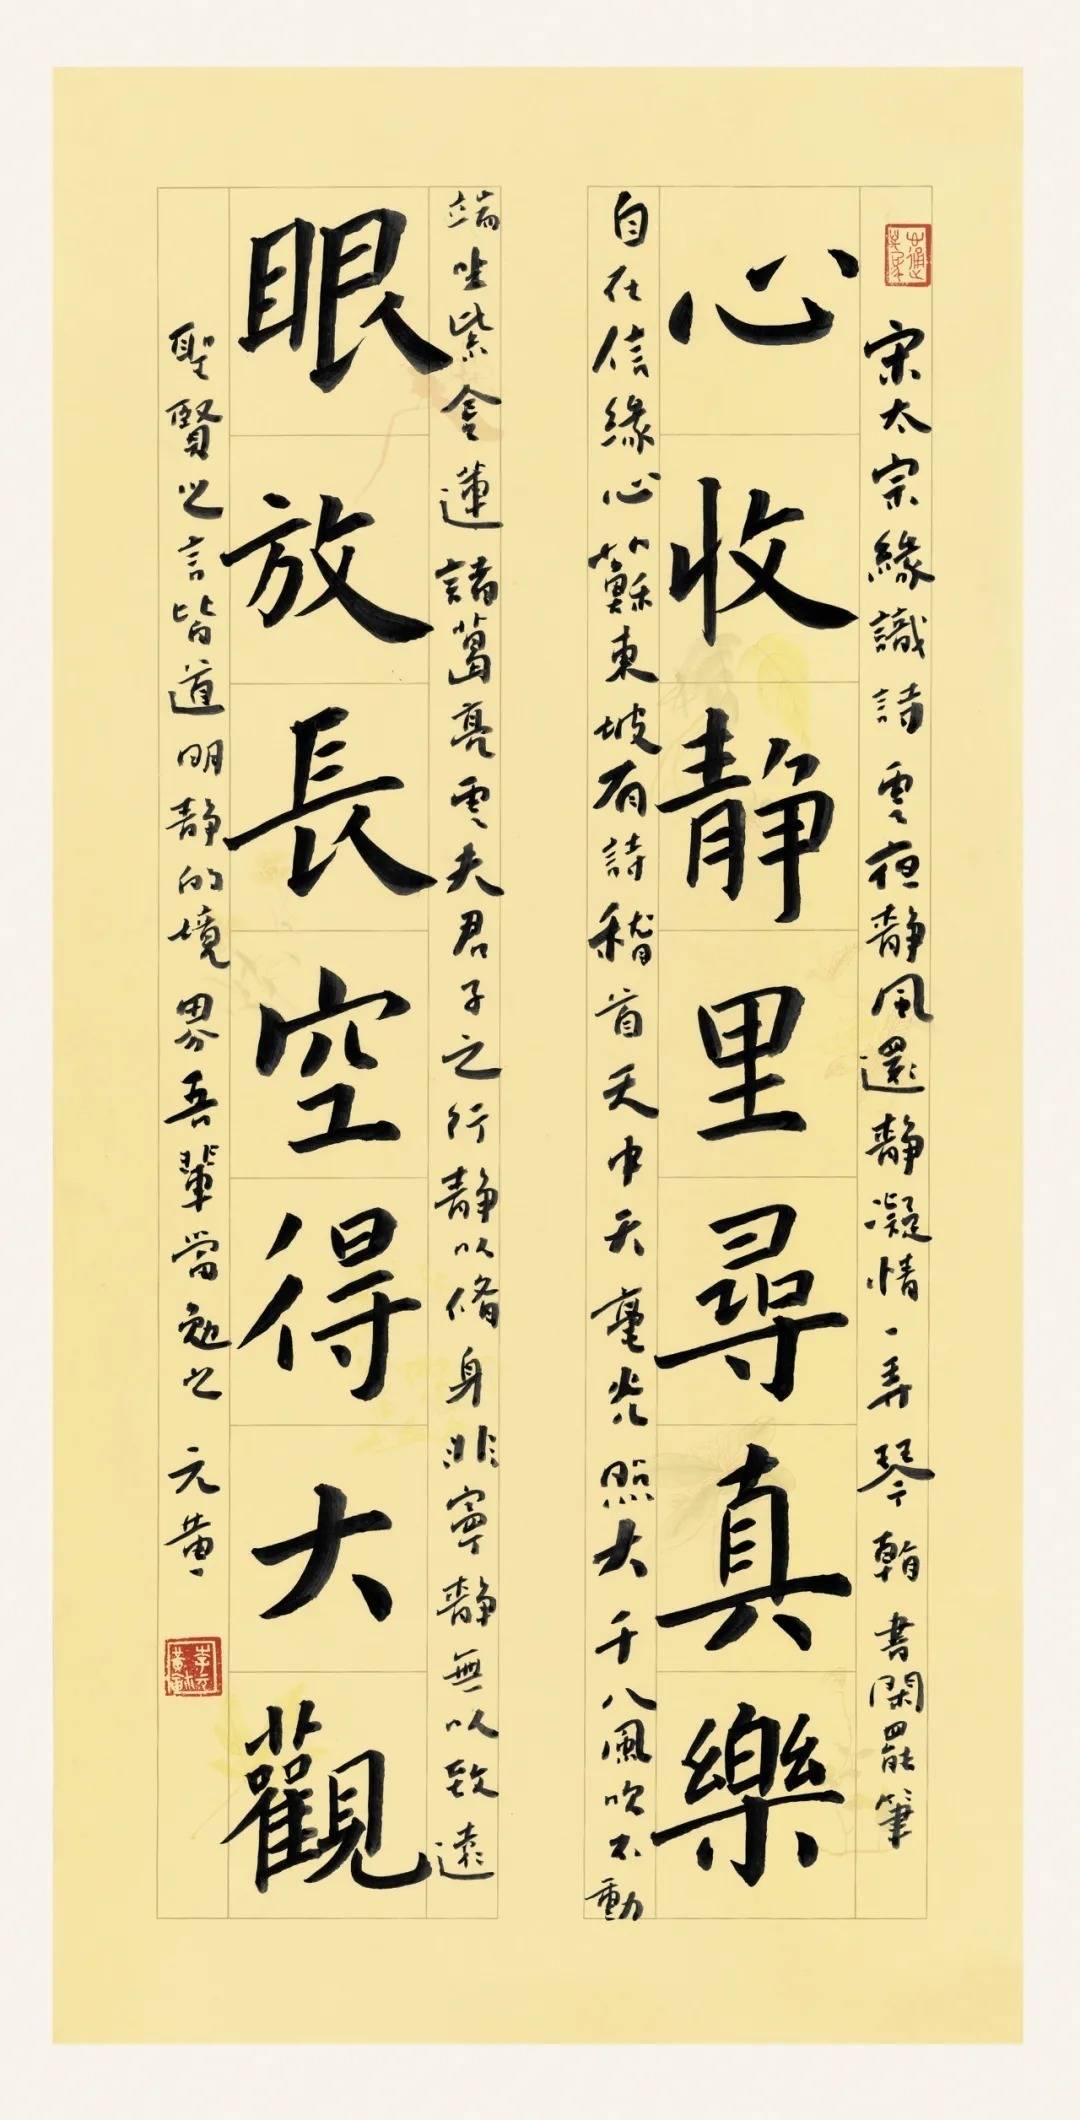 宋太宗緣識詩雲夜静風還静凝情一弄琴翰書閑罷筆
心收静里尋真樂
自在信緣心蘓東坡有詩稽首天中天毫光照大千八風吹不動
端坐紫金蓮諸葛亮雲夫君子之行静以脩身非寧静無以致遠
眼放長空得大觀
聖賢之言皆道明静的境界吾輩當勉之 元黄